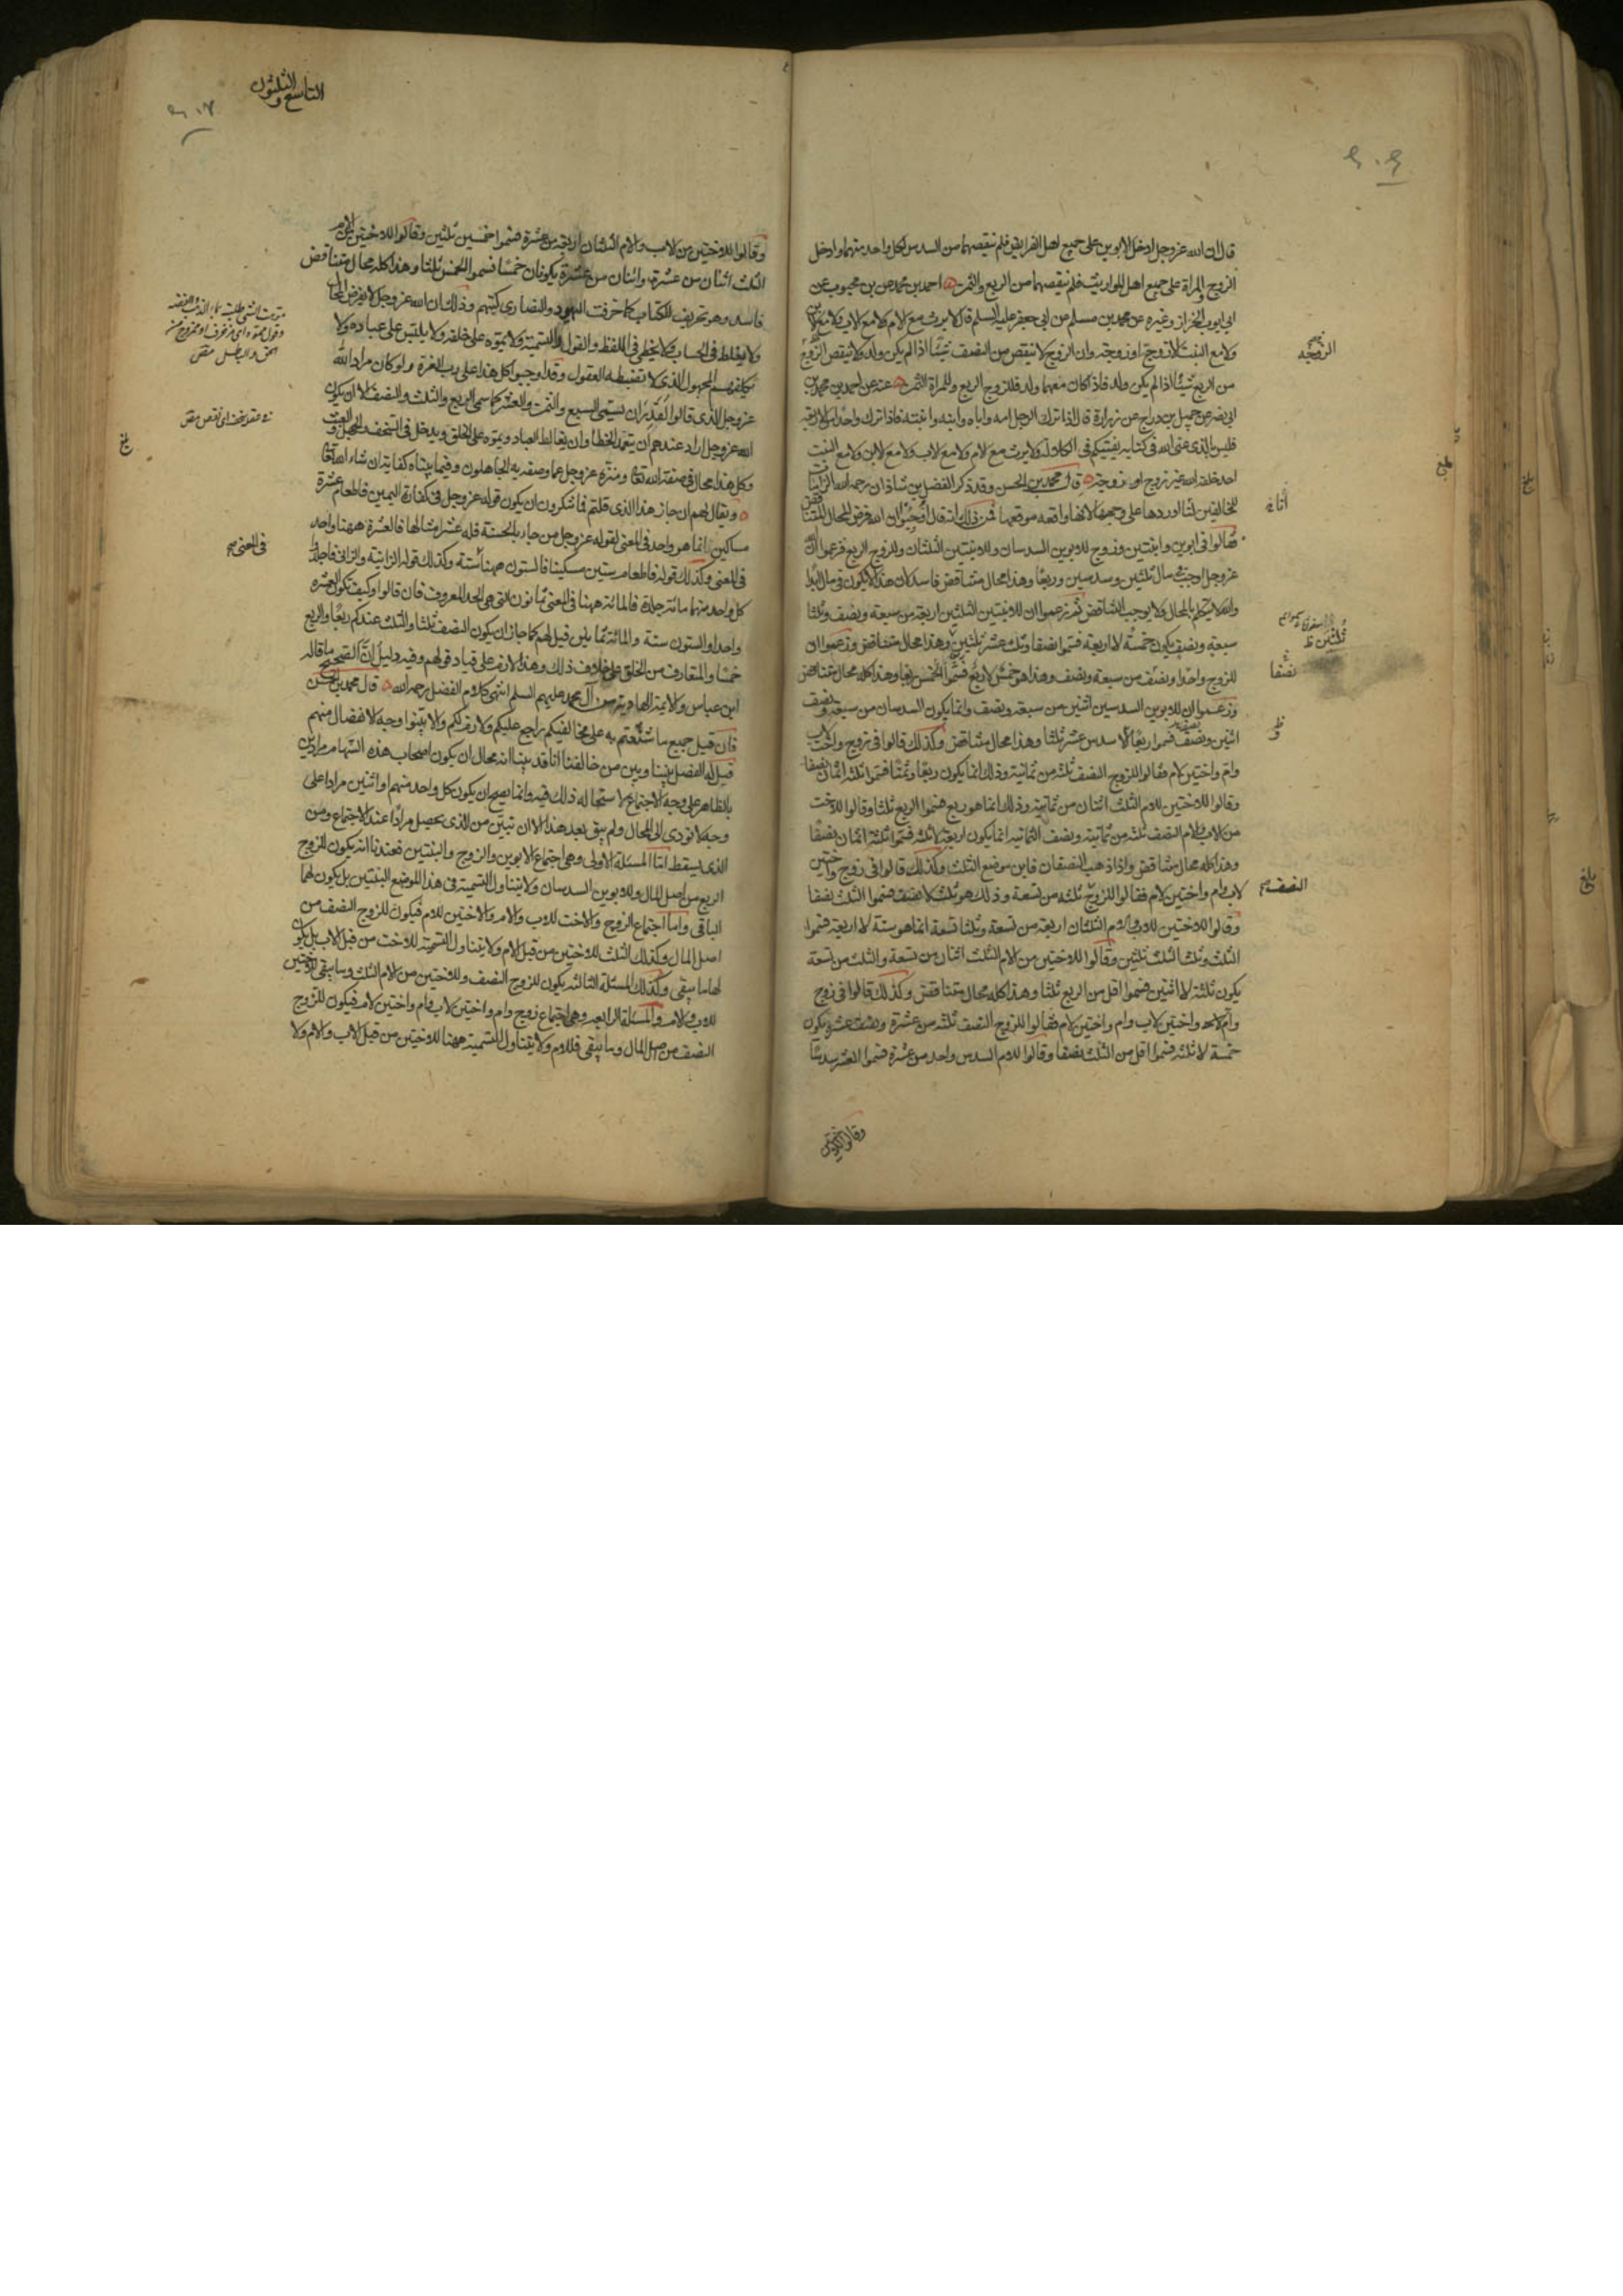 قال ان الله عز وجل ادخل الابوين على جميع اهل الفرايض فلم ينقصهما من السدس لكل واحد منهما وادخل
الزوج والمراة على جميع اهل المواريث فلم ينقصهما من الربع والثمن احمد بن محمد عن بن محبوب عن
ابي ايوب الخزاز وغيره عن محمد بن مسلم عن ابي جعفر عليه السلم قال لا يرث مع الام ولا مع الاب ولا مع الابن
ولا مع البنت الا زوج او زوجة وان الزوج لا ينقص من النصف شيئا اذا لم يكن ولد ولا تنقص الزوجة
من الربع شيئا اذا لم يكن ولد فاذا كان معهما ولد فللزوج الربع وللمراة الثمن عنه عن احمد بن محمد بن
ابي نصر عن جميل بن دراج عن زرارة قال اذا ترك الرجل امه واباه وابنه وابنته فاذا ترك واحدا من الاربعة
فليس بالذي عنى الله في كتابه يفتيكم في الكلالة ولا يرث مع الام ولا مع الاب ولا مع الابن ولا مع البنت
احد خلقه الله غير زوج او زوجة قال محمد بن الحسن وقد ذكر الفضل بن شاذان رحمه الله الزامات
للمخالفين لنا اوردها على وجهها لانها واقعة موقعها فمن ذلك انه قال اوجبوا ان الله فرض المحال المتناقض
فقالوا في ابوين وابنتين وزوج للابوين السدسان وللابنتين الثلثان وللزوج الربع فزعموا ان الله
عز وجل اوجب في مال ثلثين وسدسين وربعا وهذا محال متناقض فاسد لان هذا لا يكون في مال ابدا
والله لا يتكلم بالمحال ولا يوجب التناقض ثم زعموا ان للابنتين الثلثين اربعة من سبعة ونصف وثلثا
سبعة ونصف يكون خمسة لا اربعة فسموا نصفا وثلث عشر ثلثين وهذا محال متناقض وزعموا ان
للزوج واحدا ونصف من سبعة ونصف وهذا هو خمس لا ربع فسموا الخمس ربعا وهذا كله محال متناقض
وزعموا ان للابوين السدسين اثنين من سبعة ونصف وانما يكون السدسان من سبعة ونصف
اثنين ونصف فسموا ربعا الا سدس عشر ثلثا وهذا محال متناقض وكذلك قالوا في زوج واخت لاب
وام واختين لام فقالوا للزوج النصف ثلثة من ثمانية وذلك انما يكون ربعا وثمنا فسموا ثلثة اثمان نصفا
وقالوا للاختين للام الثلث اثنان من ثمانية وذلك انما هو ربع فسموا الربع ثلثا وقالوا للاخت
من الاب والام النصف ثلثة من ثمانية ونصف الثمانية انما يكون اربعة لا ثلثة فسموا ثلثة اثمان نصفا
وهذا كله محال متناقض واذا ذهب النصفان فاين موضع الثلث وكذلك قالوا في زوج واختين
لاب وام واختين لام فقالوا للزوج ثلثة من تسعة وذلك هو ثلث لا نصف فسموا الثلث نصفا
وقالوا للاختين للاب والام الثلثان اربعة من تسعة وثلثا تسعة انما هو ستة لا اربعة فسموا
الثلث وثلث الثلث ثلثين وقالوا للاختين من الام الثلث اثنان من تسعة والثلث من تسعة
يكون ثلثة لا اثنين فسموا اقل من الربع ثلثا وهذا كله محال متناقض وكذلك قالوا في زوج
وام واختين لاب وام واختين لام فقالوا للزوج النصف ثلثة من عشرة ونصف عشرة يكون
خمسة لا ثلثة فسموا اقل من الثلث نصفا وقالوا للام السدس واحد من عشرة فسموا العشر سدسا
وقالوا للاختين
الزوجة
ثلثين ظ
نصفا
النصف
التاسع والثلثون
وقالوا للاختين من الاب والام الثلثان اربعة من عشرة فسموا خمسين ثلثين وقالوا للاختين من الام
الثلث اثنان من عشرة واثنان من عشرة يكونان خمسا فسموا الخمس ثلثا وهذا كله محال متناقض
فاسد وهو تحريف للكتاب كما حرفت اليهود والنصارى كتبهم وذلك ان الله عز وجل لا يفرض المحال
ولا يغلط في الحساب ولا يخطي في اللفظ والقول والتسمية ولا يموه على خلقه ولا يلبس على عباده ولا
يكلفهم المجهول الذي لا تضبطه العقول وقد اوجبوا كل هذا على رب العزة ولو كان مراد الله
عز وجل الذي قالوا لقدر ان يسمى السبع والتسع والعشر كما سمى الربع والثلث والنصف الا ان يكون
الله عز وجل اراد عندهم ان يتعمد الخطا وان يغالط العباد ويموه على الخلق ويدخل في السخف والجهل والعبث
وكل هذا محال في صفة الله تعا ومنزه عز وجل عما وصفه به الجاهلون وفيما بيناه كفاية ان شاء الله تعا
ويقال لهم ان جاز هذا الذي قلتم فما تنكرون ان يكون قوله عز وجل في كفارة اليمين فاطعام عشرة
مساكين انما هو واحد في المعنى لقوله عز وجل من جاء بالحسنة فله عشر امثالها فالعشرة ههنا واحد
في المعنى وكذلك قوله فاطعام ستين مسكينا فالستون ههنا ستة وكذلك قوله الزانية والزاني فاجلدوا
كل واحد منهما مائة جلدة فالمائة ههنا في المعنى ثمانون التي هي الحد المعروف فان قالوا وكيف تكون العشرة
واحدا والستون ستة والمائة ثمانين قيل لهم كما جاز ان يكون النصف ثلثا والثلث عندكم ربعا والربع
خمسا والمتعارف من الخلق على خلاف ذلك وهذا لازم على قياد قولهم وفيه دليل ان الصحيح ما قاله
ابن عباس والائمة الهادية من آل محمد عليهم السلم انتهى كلام الفضل رحمه الله قال محمد بن الحسن
فان قيل جميع ما شنعتم به على مخالفيكم راجع عليكم ولازم لكم والا بينوا وجه الانفصال منهم
قيل له الفصل بيننا وبين من خالفنا انا قد بينا انه محال ان يكون اصحاب هذه السهام مرادين
بالظاهر على وجه الاجتماع لاستحالة ذلك فيه وانما يصح ان يكون كل واحد منهم او اثنين مرادا على
وجه لا تودي الى المحال ولم يبق بعد هذا الا ان تبين من الذي يحصل مرادا عند الاجتماع ومن
الذي يسقط اما المسئلة الاولى وهي اجتماع الابوين والزوج والبنتين فعندنا انه يكون للزوج
الربع من اصل المال وللابوين السدسان ولا يتناول التسمية في هذا الموضع البنتين بل يكون لهما
الباقي واما اجتماع الزوج والاخت للاب والام والاختين للام فيكون للزوج النصف من
اصل المال وكذلك الثلث للاختين من قبل الام ولا يتناول التسمية للاخت من قبل الاب بل يكون
لها ما يبقى وكذلك المسئلة الثالثة يكون للزوج النصف وللاختين من الام الثلث وما يبقى للاختين
للاب والام والمسئلة الرابعة وهي اجتماع زوج وام واختين لاب وام واختين لام فيكون للزوج
النصف من اصل المال وما يبقى فللام ولا يتناول التسمية ههنا للاختين من قبل الاب والام ولا
في المعنى
بلغ